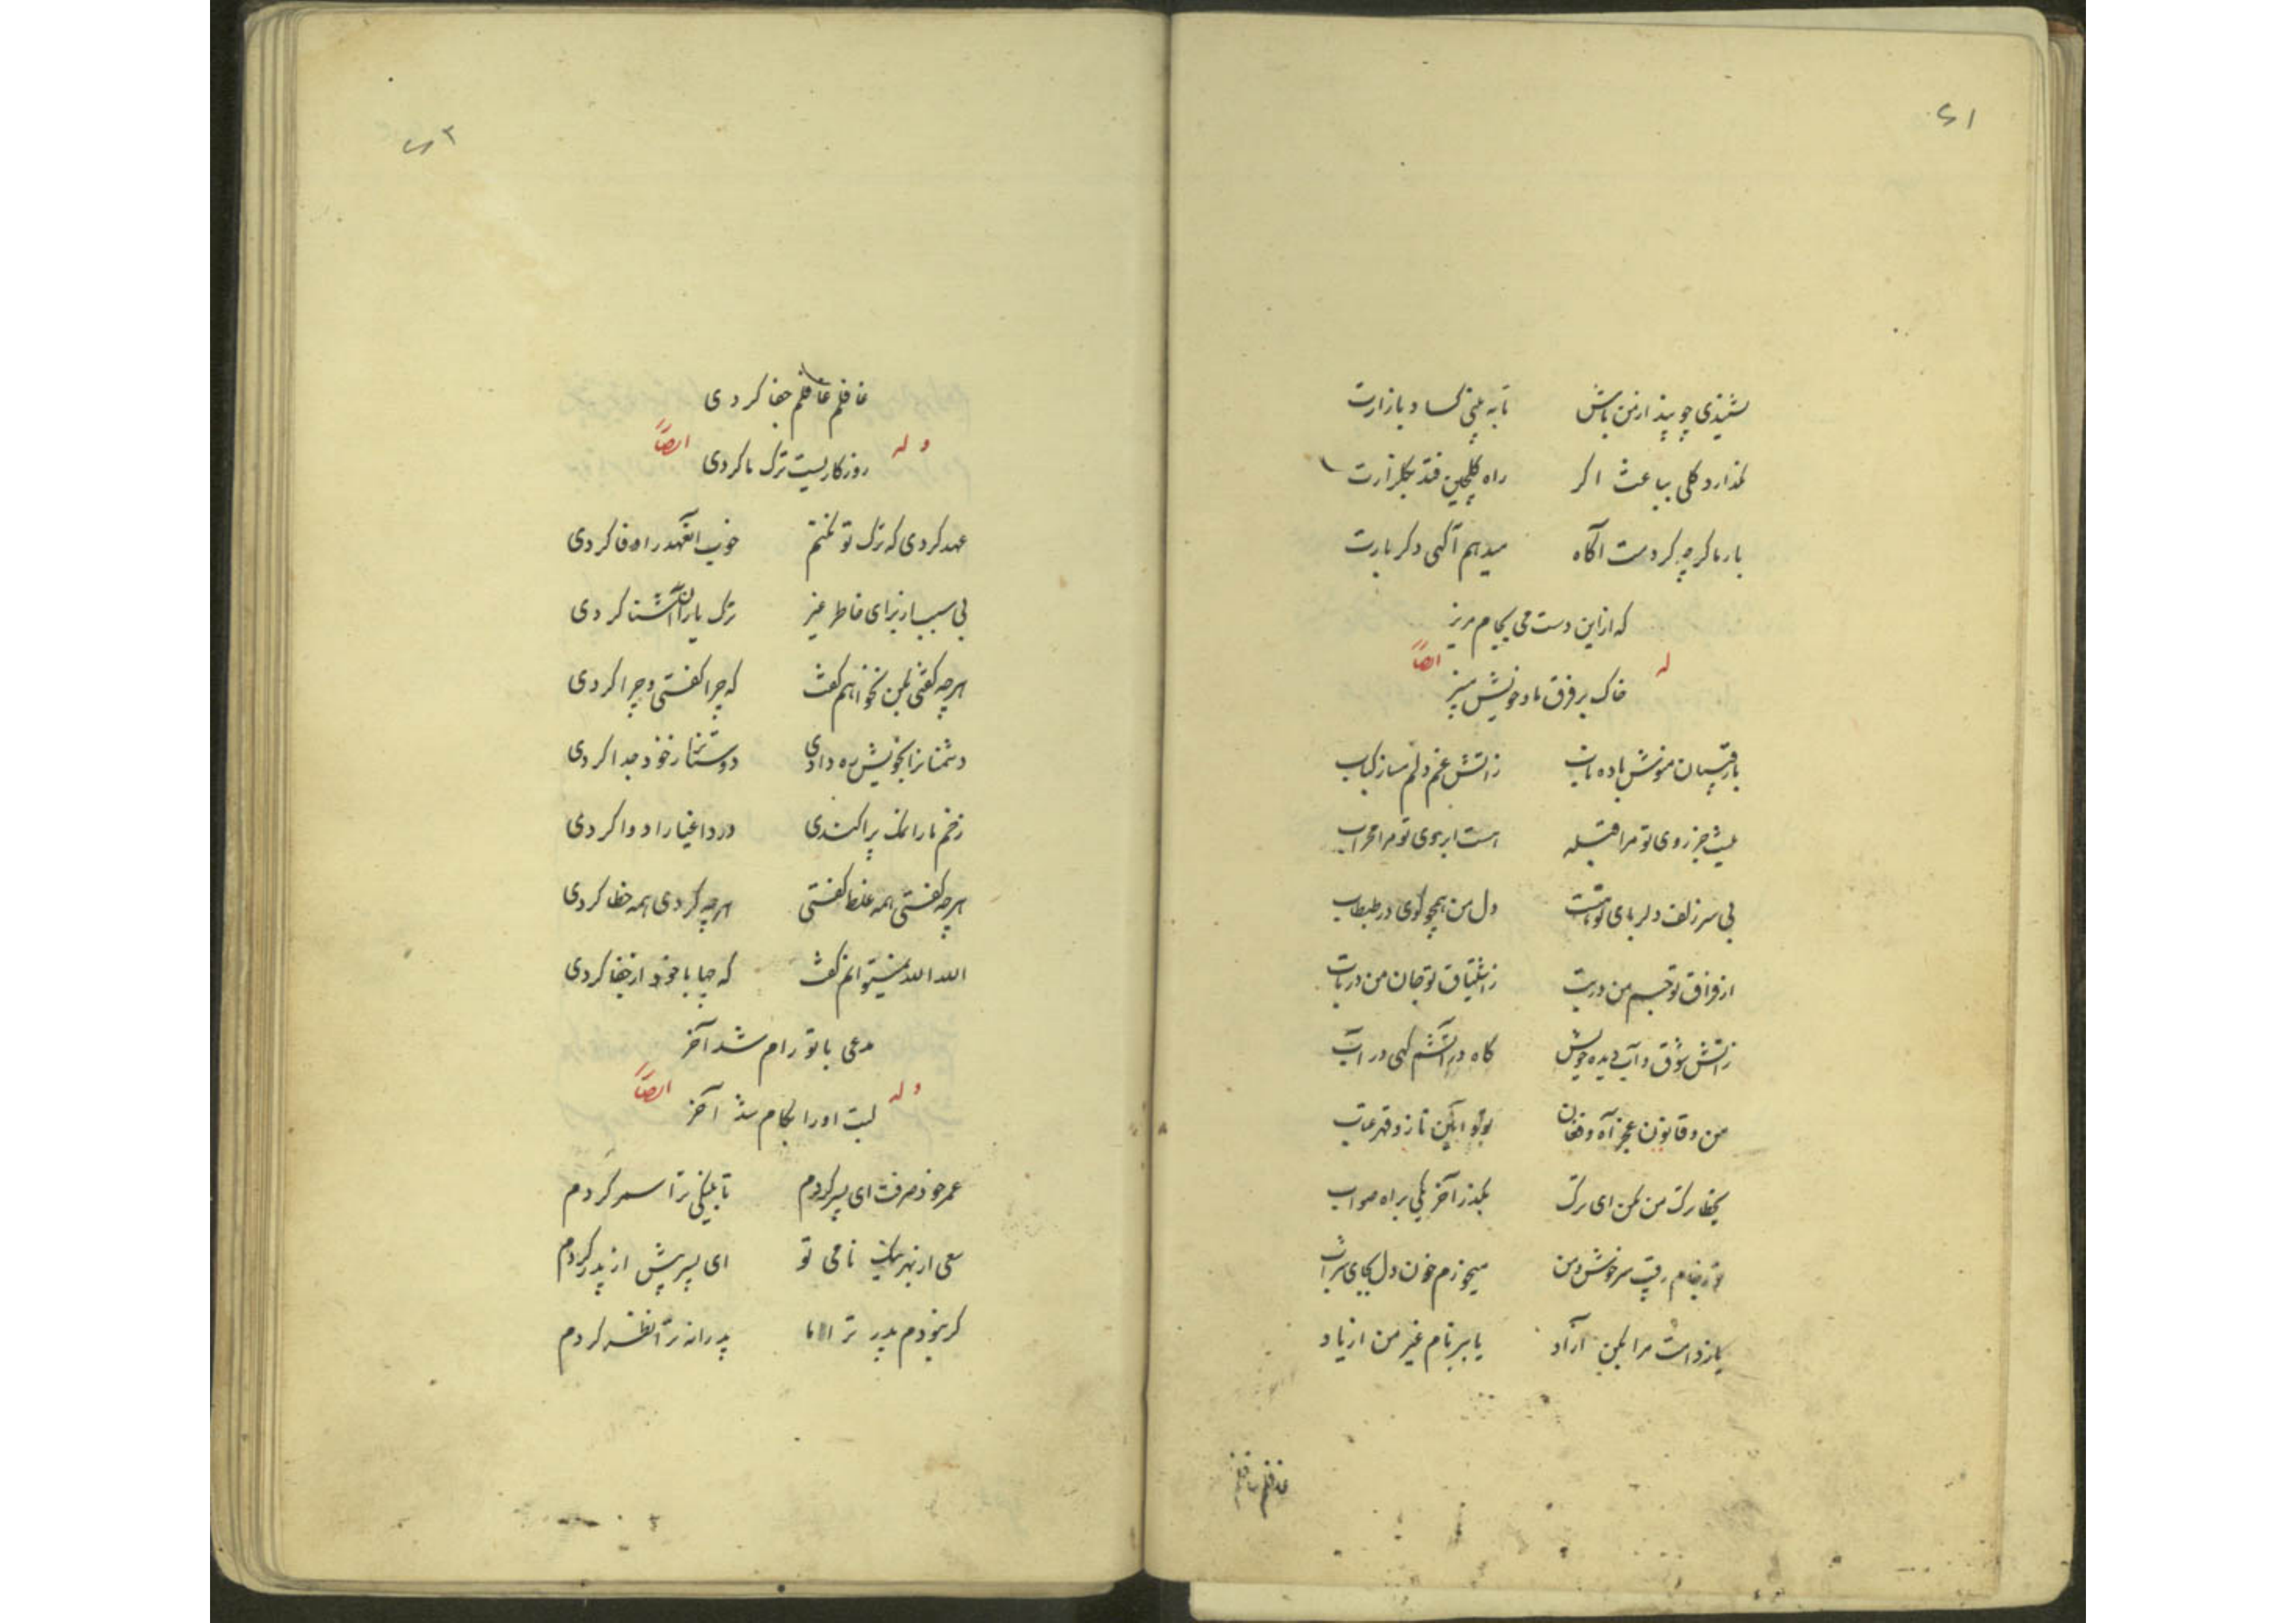 ۶۱
نشنیدی چو پند از من باش تا ببینی کساد بازارت
نگذارد گلی بباغت اگر راه گلچین فتد بگلزارت
بارها گرچه کردمت آگاه میدهم آگهی دگر بارت
که ازین دست می بجام مریز
له ایضاً
خاک بر فرق ما و خویش مبیز
با رقیبان منوش باده ناب زاتش غم دلم مساز کباب
نیست جز روی تو مرا قبله هست ابروی تو مرا محراب
بی سر زلف دلربای تو هست دل من همچو گوی در طبطاب
از فراق تو جسم من در تب ز اشتیاق تو جان من در تاب
ز آتش شوق و آب دیده خویش گاه در آتشم گهی در آب
من و قانون عجز و آه و فغان تو و آیین ناز و قهر و عتاب
بخطا ترک من مکن ای ترک بگذر آخر یکی براه صواب
تو ز جام رقیب سرخوش و من میخورم خون دل بجای شراب
یا ز دامت مرا بکن آزاد یا ببر نام غیر من از یاد
غافلم غافلم
۶۲
غافلم غافلم جفا کردی
وله ایضاً
روزگاریست ترک ما کردی
عهد کردی که ترک تو نکنم خوب آنعهد را وفا کردی
بی سبب از برای خاطر غیر ترک یاران آشنا کردی
هرچه گفتی بمن نخواهم گفت که چرا گفتی و چرا کردی
دشمنانرا بخویش ره دادی دوستانرا ز خود جدا کردی
زخم ما را نمک پراکندی درد اغیار را دوا کردی
هرچه گفتی همه غلط گفتی هرچه کردی همه خطا کردی
الله الله نمیتوانم گفت که چها با خود از جفا کردی
مدعی با تو رام شد آخر
وله ایضاً
لبت او را بکام شد آخر
عمر خود صرفت ای پسر کردم تا بنیکی ترا سمر کردم
سعی از بهر نیک نامی تو ای پسر بیش از پدر کردم
گر نبودم پدر ترا اما پدرانه ترا نظر کردم